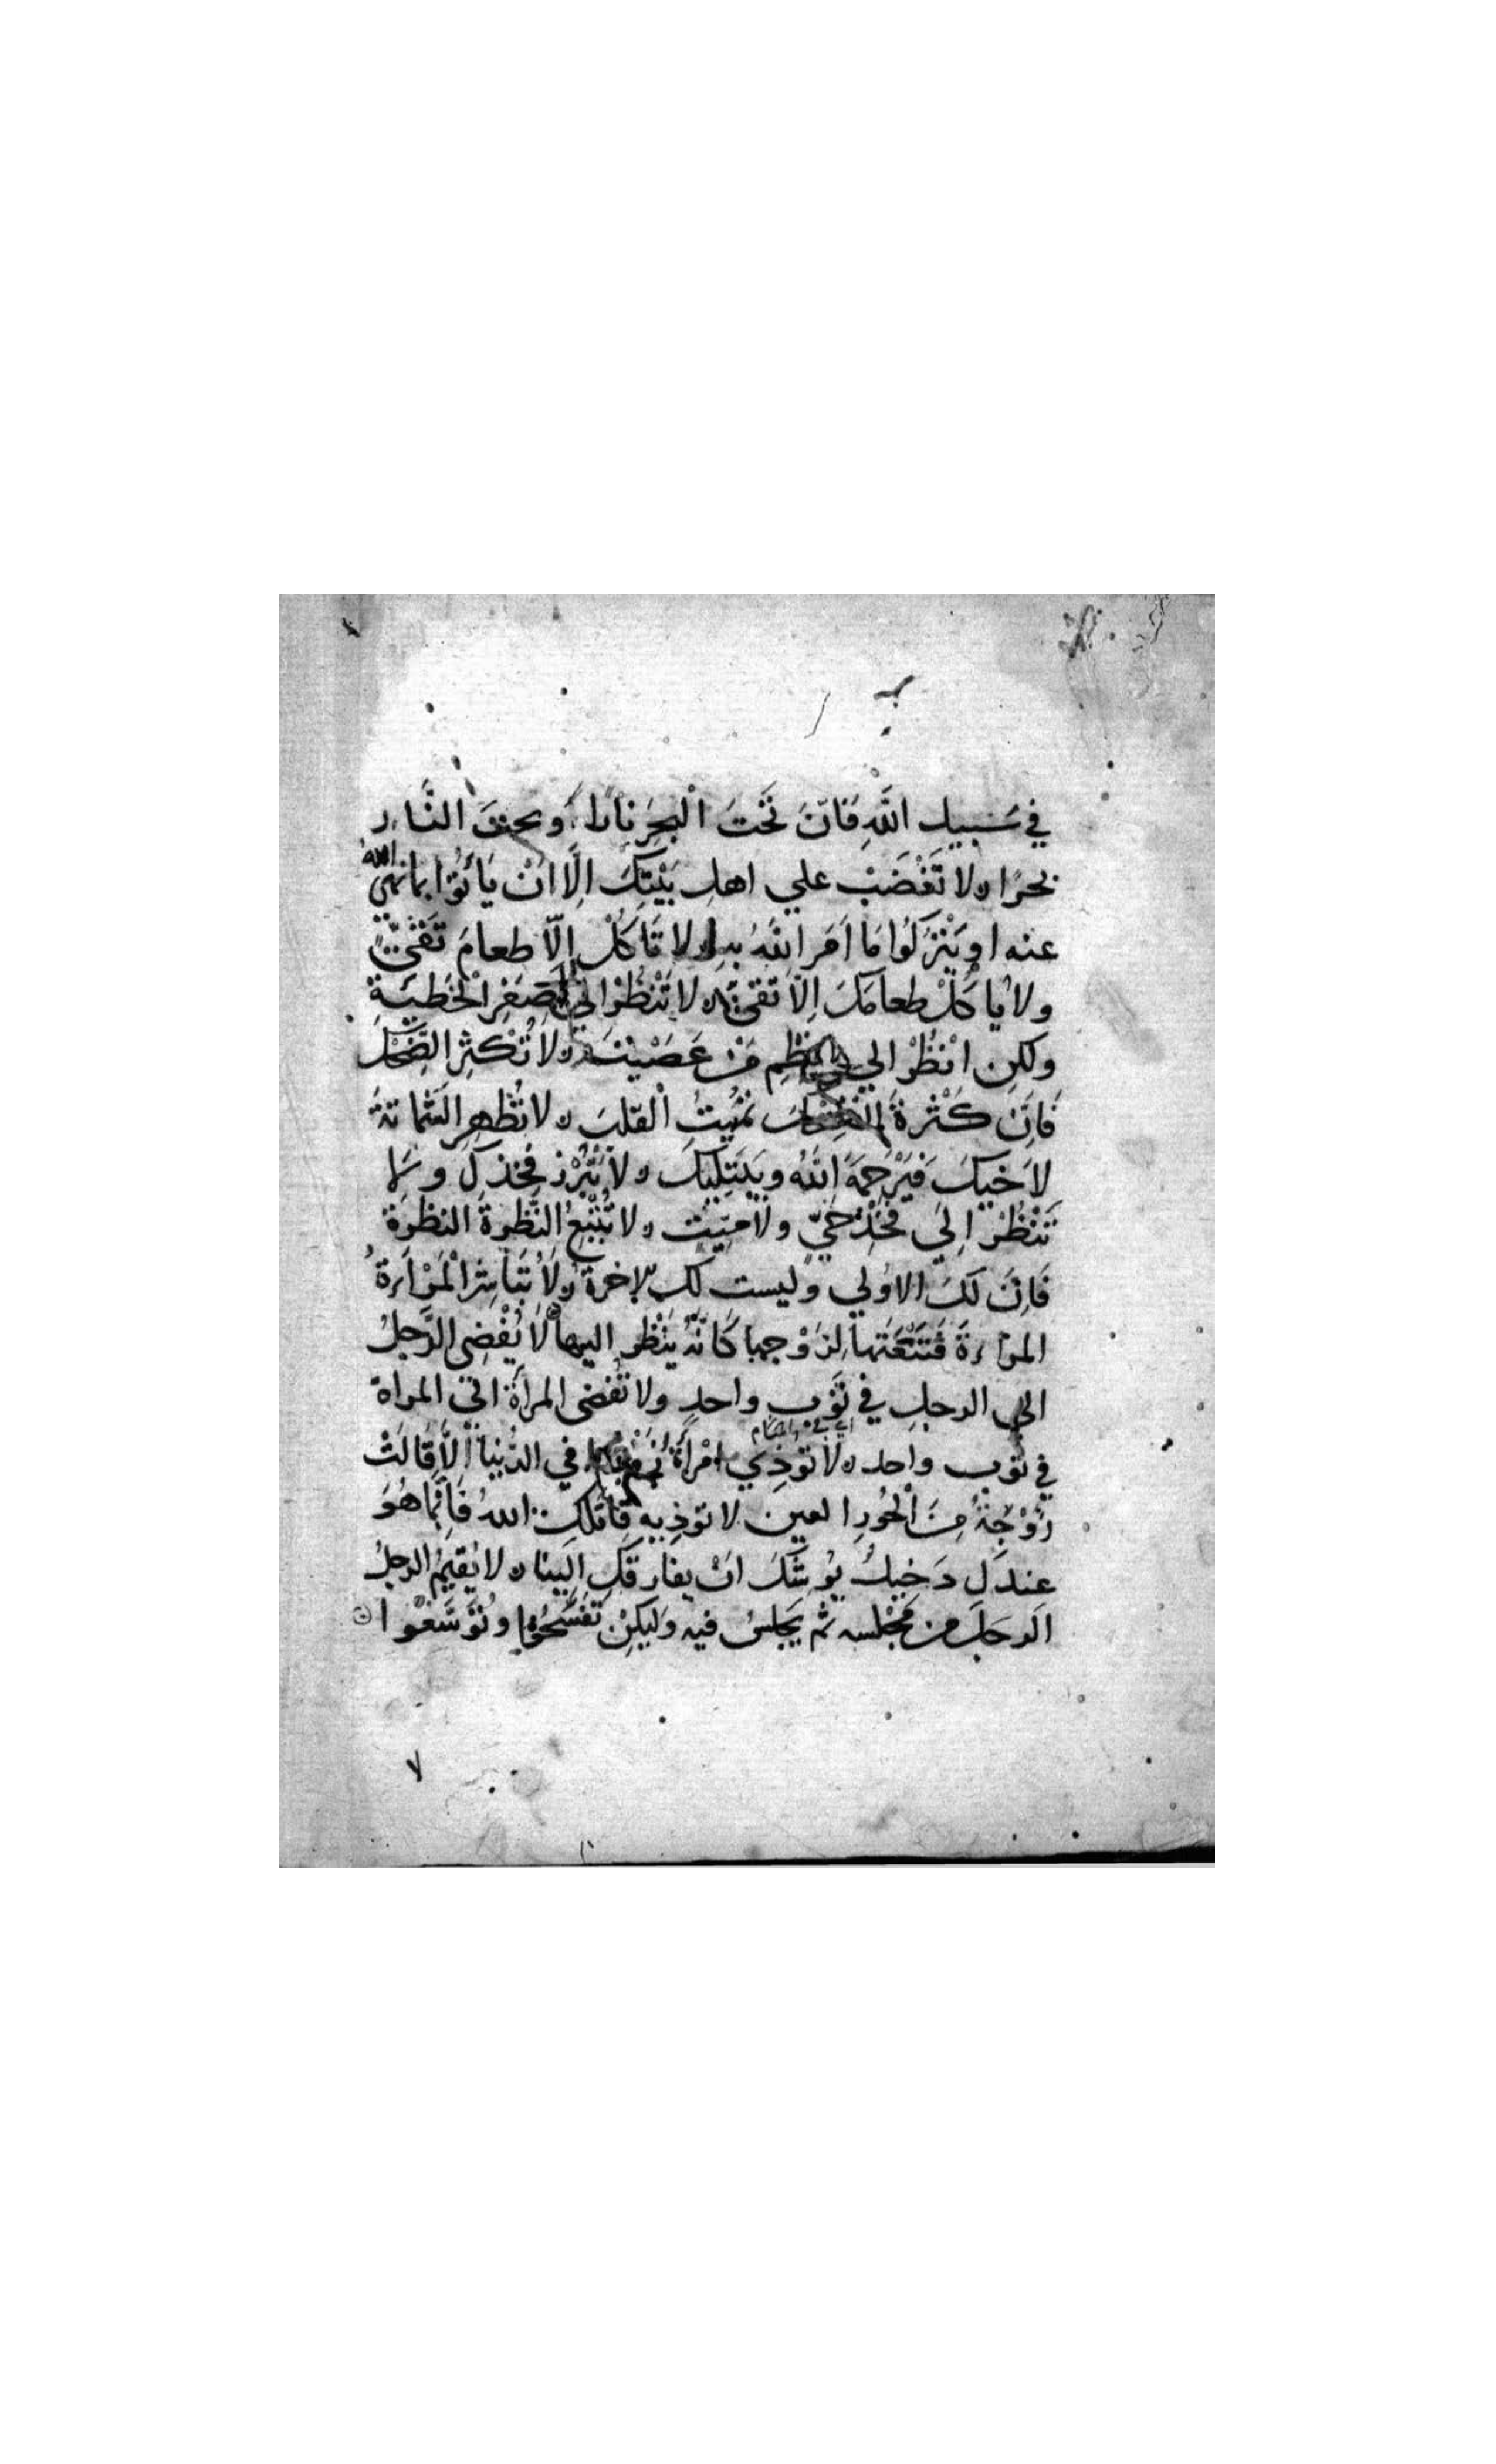 في سَبيل اللَّهِ فَاِنّ تَحْتَ الْبَحِر نارا وَتحتَ النَّار
بحرًا ه لا تَغْضَبْ علي اهل بَيْتِكَ اِلَّا اَنْ يَاْتُوا بما نهي الله
عنه او يَتْرُكُوا مَا اَمَر اللَّهُ به ه لا تَاكُلْ اِلَّا طعامَ تَقيّ
ولا يَاكُلْ طعامَكَ اِلّا تَقيّ ه لا تَنْظُرْ الي صِغَرِ الْخَطيَّةِ
ولكِن انْظُرْ الي عِظِم مَنْ عَصَيْتَ ه لا تُكْثِرِ الضِّحْكَ
فَاِنّ كَثْرةَ الضِّحْكَ تُمِيتُ الْقلبَ ه لا تُظْهِرِ الشَّماتةَ
لاَخيكَ فَيَرْحَمَهُ اللَّهُ ويَبْتَلِيكَ ه لا تُبْرِزْ فَخِذكَ ولا
تَنْظُرْ اِلَي فَخِذِ حَيّ ولا مَيّت ه لا تُتْبِعِ النَّظرةَ النظرَةَ
فَاِنَّ لَكَ الاوُلي وليست لك الاخرة ه لاَ تُبَاشِرُ الْمَرْاَةُ
المرْاةَ فَتَنْعَتَها لِزَوْجها كَاَنّهُ يَنْظُر اليها ه لا يُفْضِي الرَّجلُ
الي الرجلِ في ثَوْبٍ واحدٍ ولا تُفْضى المرأةُ الى المراة
في ثوب واحد ه لا توذِي امْرأةٌ زَوْجَها في الدُّنيا اِلّا قَالَتْ
زَوْجَةُ مِنَ الْحُورِ العين لا توذِيهِ قَاتَلكِ اللهُ فَاِنَّما هُوَ
عندَكِ دَخِيلٌ يُوشَكَ انْ يفارقَكِ اِلَينا ه لا يُقيمُ الرجلُ
الرجلَ من مَجْلسه ثم يَجلسُ فيه وَلكِنْ تَفَسَّحُوا وتَوَسَّعُوا
٧